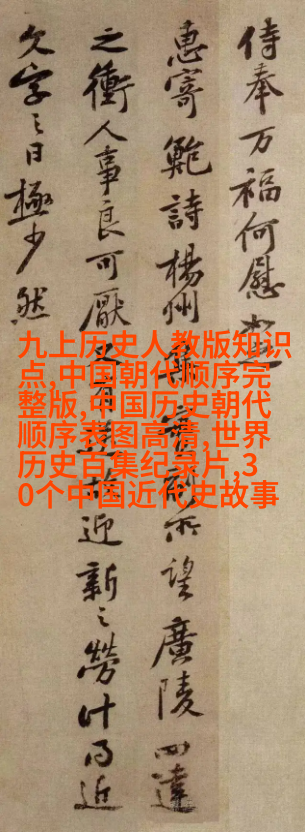 侍奉万福何慰
惠寄鲍詩楊州所望廣陵四達
之衝人事良可厭又有故迎新之勞计为近
欠字之日極少然
九上历史人教版知识
点,中国朝代顺序完
整版,中国历史朝代
顺序表图高清,世界
历史百集纪录片,3
0个中国近代史故事